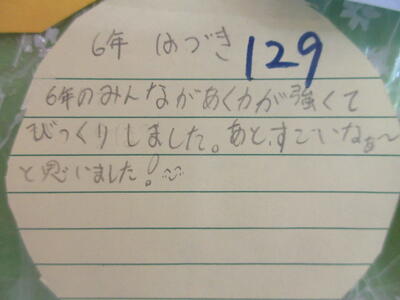 6年 はづき 129
6年のみんながあく力が強くて
びっくりしました。あと、すごいなぁ〜
と思いました!